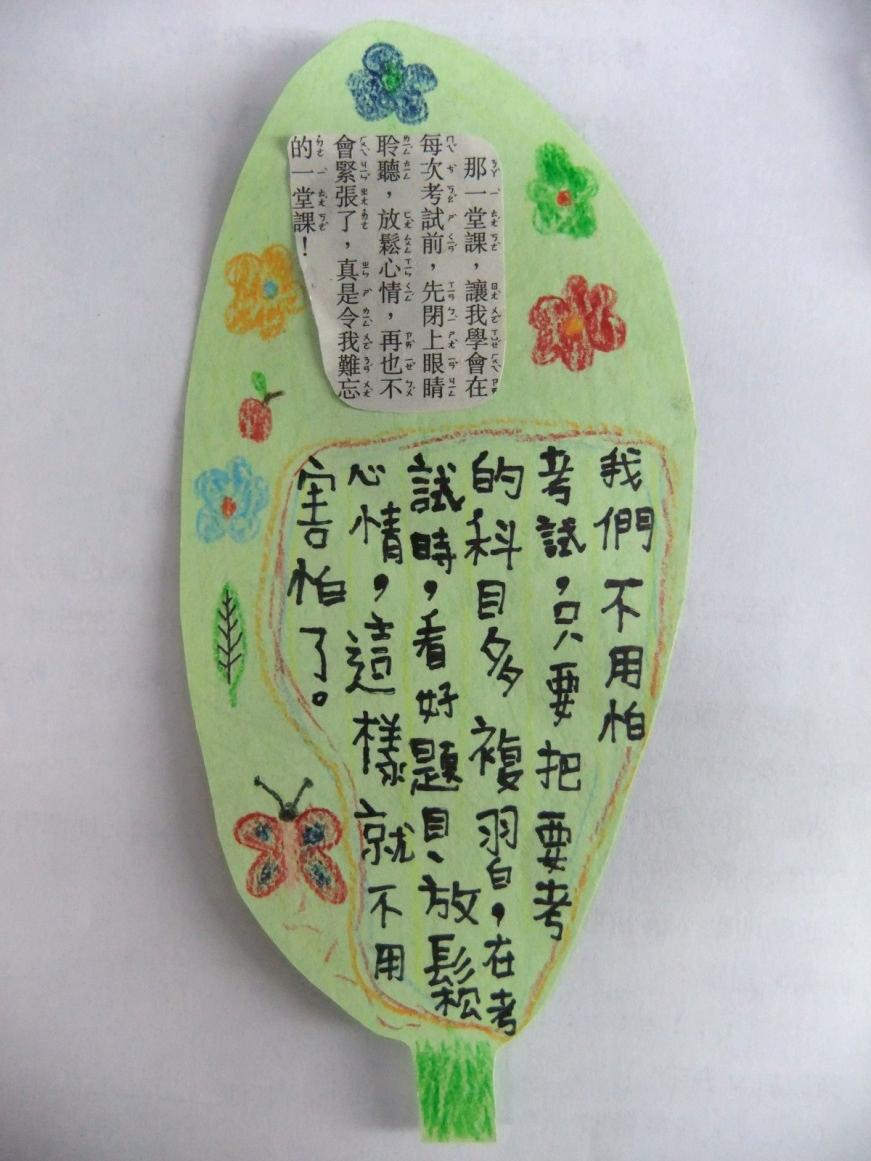 那一堂課，讓我學會在
每次考試前，先閉上眼睛
聆聽，放鬆心情，再也不
會緊張了，真是令我難忘
的一堂課！
我們不用怕
考試，只要把要考
的科目多複習，在考
試時，看好題目、放鬆
心情，這樣就不用
害怕了。